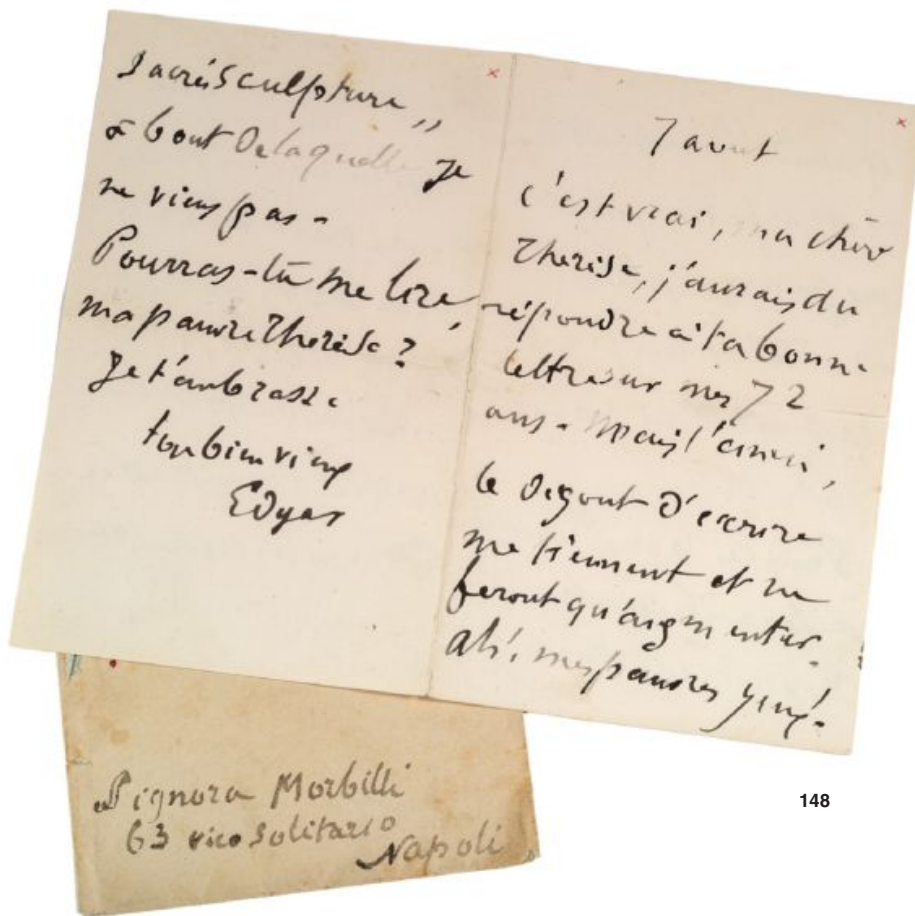 Sacrée Sculpture,,
à bout de laquelle je
ne viens pas -
Pourras-tu me lire,
ma pauvre Therese ?
Je t'embrasse
ton bien vieux
Edgar
7 aout
C'est vrai, ma chère
Therese, j'aurais du
répondre à ta bonne
lettre sur mes 72
ans - Mais l'ennui,
le degout d'ecrire
me tiennent et ne
feront qu'augmenter.
Ah!, mes pauvres yeux!
Signora Morbilli
63 vico Solitario
Napoli
148